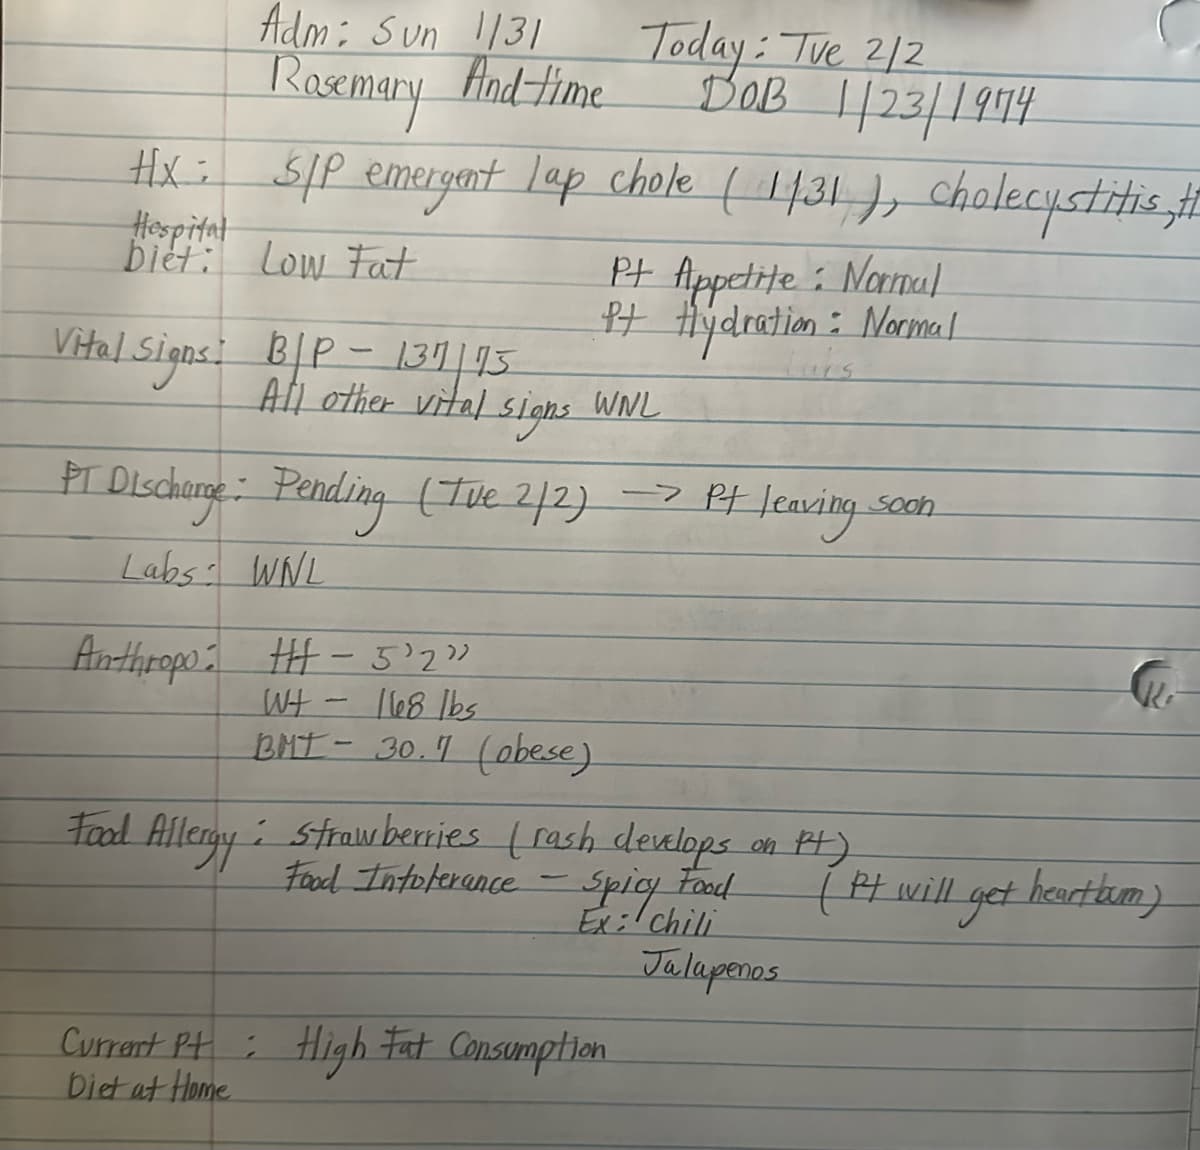 Adm: Sun 1/31 Today: Tue 2/2
Rosemary And-time DOB 1/23/1974
Hx: S/P emergent lap chole (1/31), cholecystitis,
Hospital
Diet: Low Fat Pt Appetite: Normal
Pt Hydration: Normal
Vital Signs: B/P - 137/75
All other vital signs WNL
PT Discharge: Pending (Tue 2/2) -> Pt leaving soon
Labs: WNL
Anthropo: Ht - 5'2"
Wt - 168 lbs
BMI - 30.7 (obese)
Food Allergy: Strawberries (rash develops on Pt)
Food Intolerance - Spicy Food (Pt will get heartburn)
Ex: Chili
Jalapenos
Current Pt : High Fat Consumption
Diet at Home